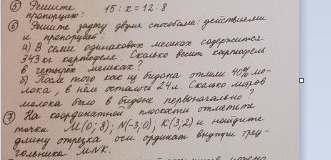 ⑤ Решите
пропорцию: 15 : x = 12 : 8
⑥ Решите задачу двумя способами: действиями
и пропорцией.
а) В семи одинаковых мешках содержится
343 кг картофеля. Сколько весит картофель
в четырёх мешках?
б) После того как из бидона отлили 40% мо-
лока, в нём осталось 24 л. Сколько литров
молока было в бидоне первоначально?
⑦ На координатной плоскости отметьте
точки M(0; 8); N(-3; 0); K(3; 2) и найдите
длину отрезка оси ординат внутри треу-
гольника MNK.